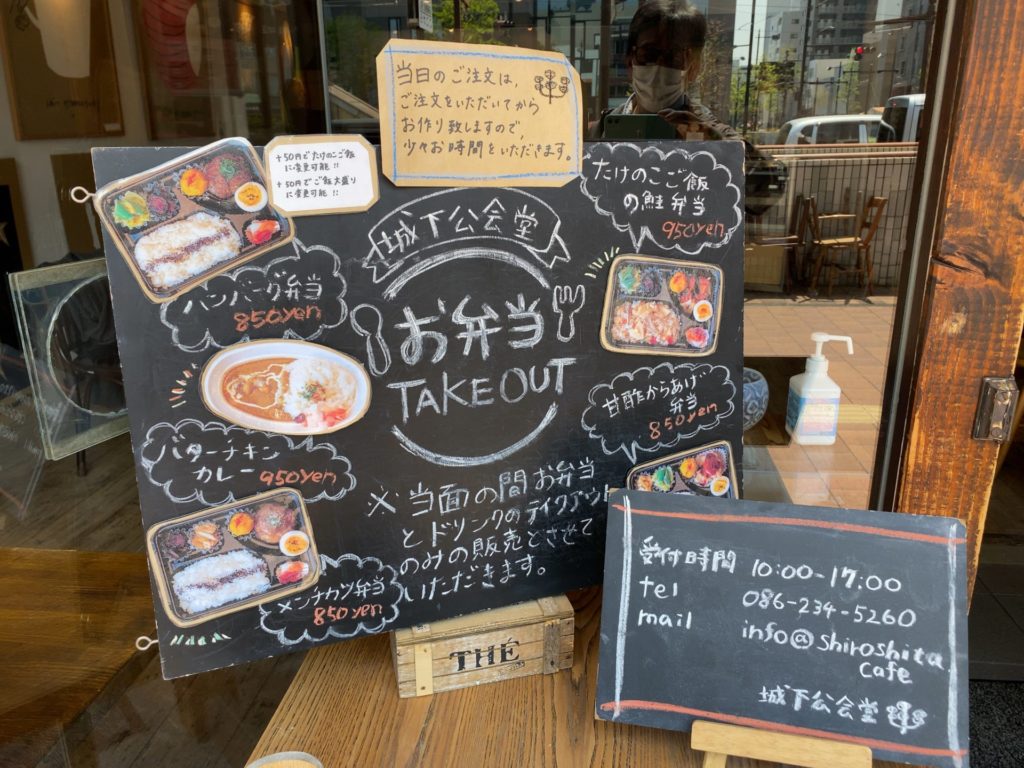 当日のご注文は、
ご注文をいただいてから
お作り致しますので、
少々お時間をいただきます。
+50円でたけのこご飯
に変更可能!!
+50円でご飯大盛り
に変更可能!!
城下公会堂
お弁当
TAKE OUT
ハンバーグ弁当
850yen
バターチキン
カレー 950yen
メンチカツ弁当
850yen
たけのこご飯
の鮭弁当
950yen
甘酢からあげ
弁当
850yen
※当面の間お弁当
とドリンクのテイクアウト
のみの販売とさせて
いただきます。
THÉ
受付時間 10:00-17:00
tel 086-234-5260
mail info@shiroshita
cafe
城下公会堂